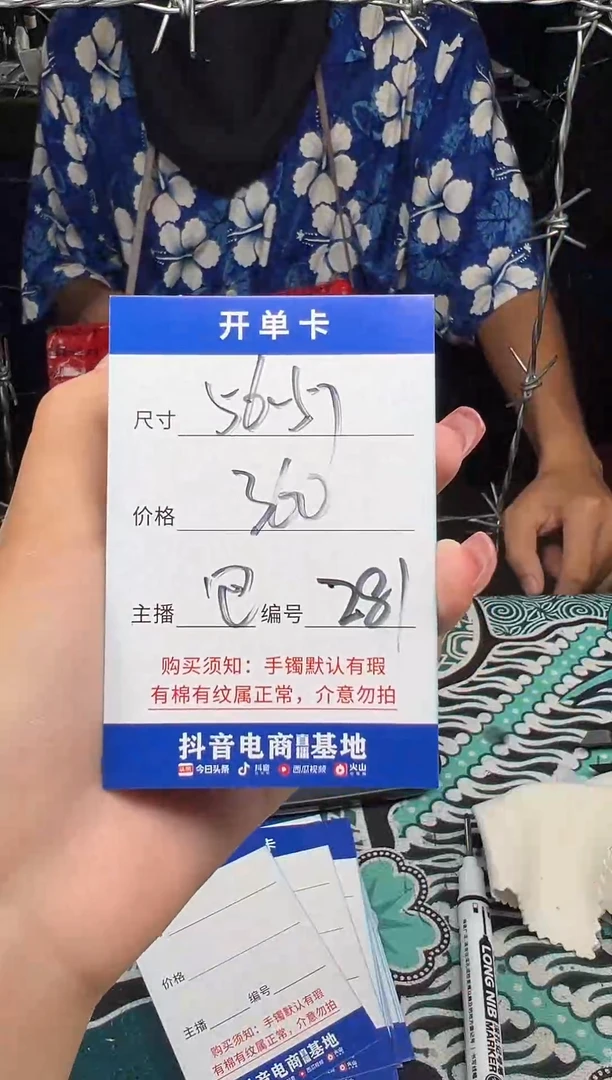 开单卡
尺寸 56-57
价格 360
主播 包 编号 281
购买须知：手镯默认有瑕
有棉有纹属正常，介意勿拍
抖音电商直播基地
今日头条 抖音 西瓜视频 火山
卡
价格
主播 编号
购买须知：手镯默认有瑕
有棉有纹属正常，介意勿拍
抖音电商直播基地
LONG NIB
MARKER